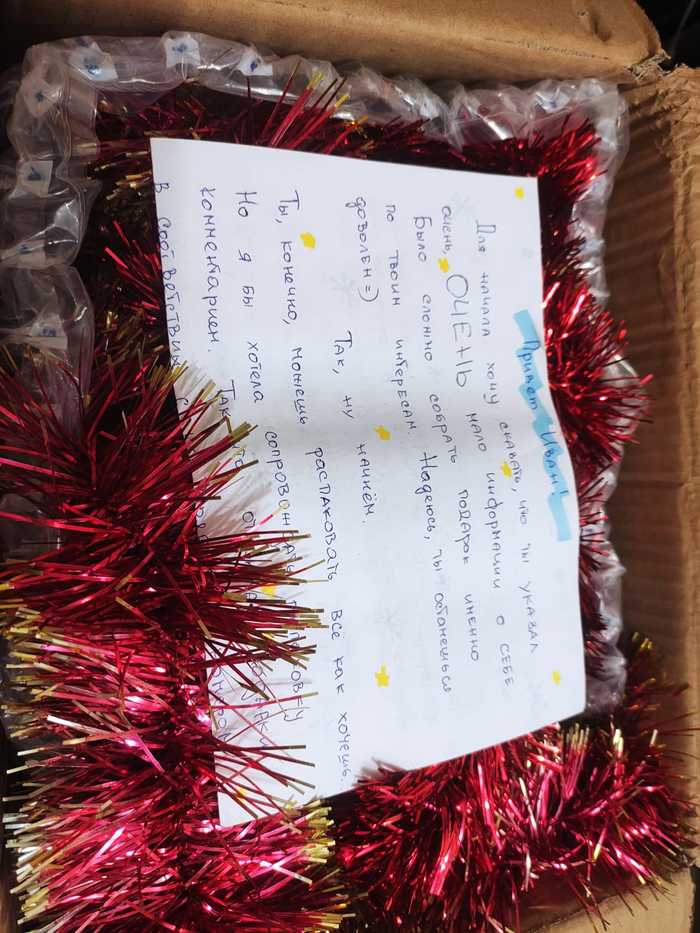 Привет Иван!
Для начала хочу сказать, что ты указал
очень ОЧЕНЬ мало информации о себе
Было сложно собрать подарок именно
по твоим интересам. Надеюсь, ты останешься
доволен =)
Так, ну начнём.
Ты, конечно, можешь распаковать всё как хочешь.
Но я бы хотела сопровождать
комментарием. Так
В соответствии с